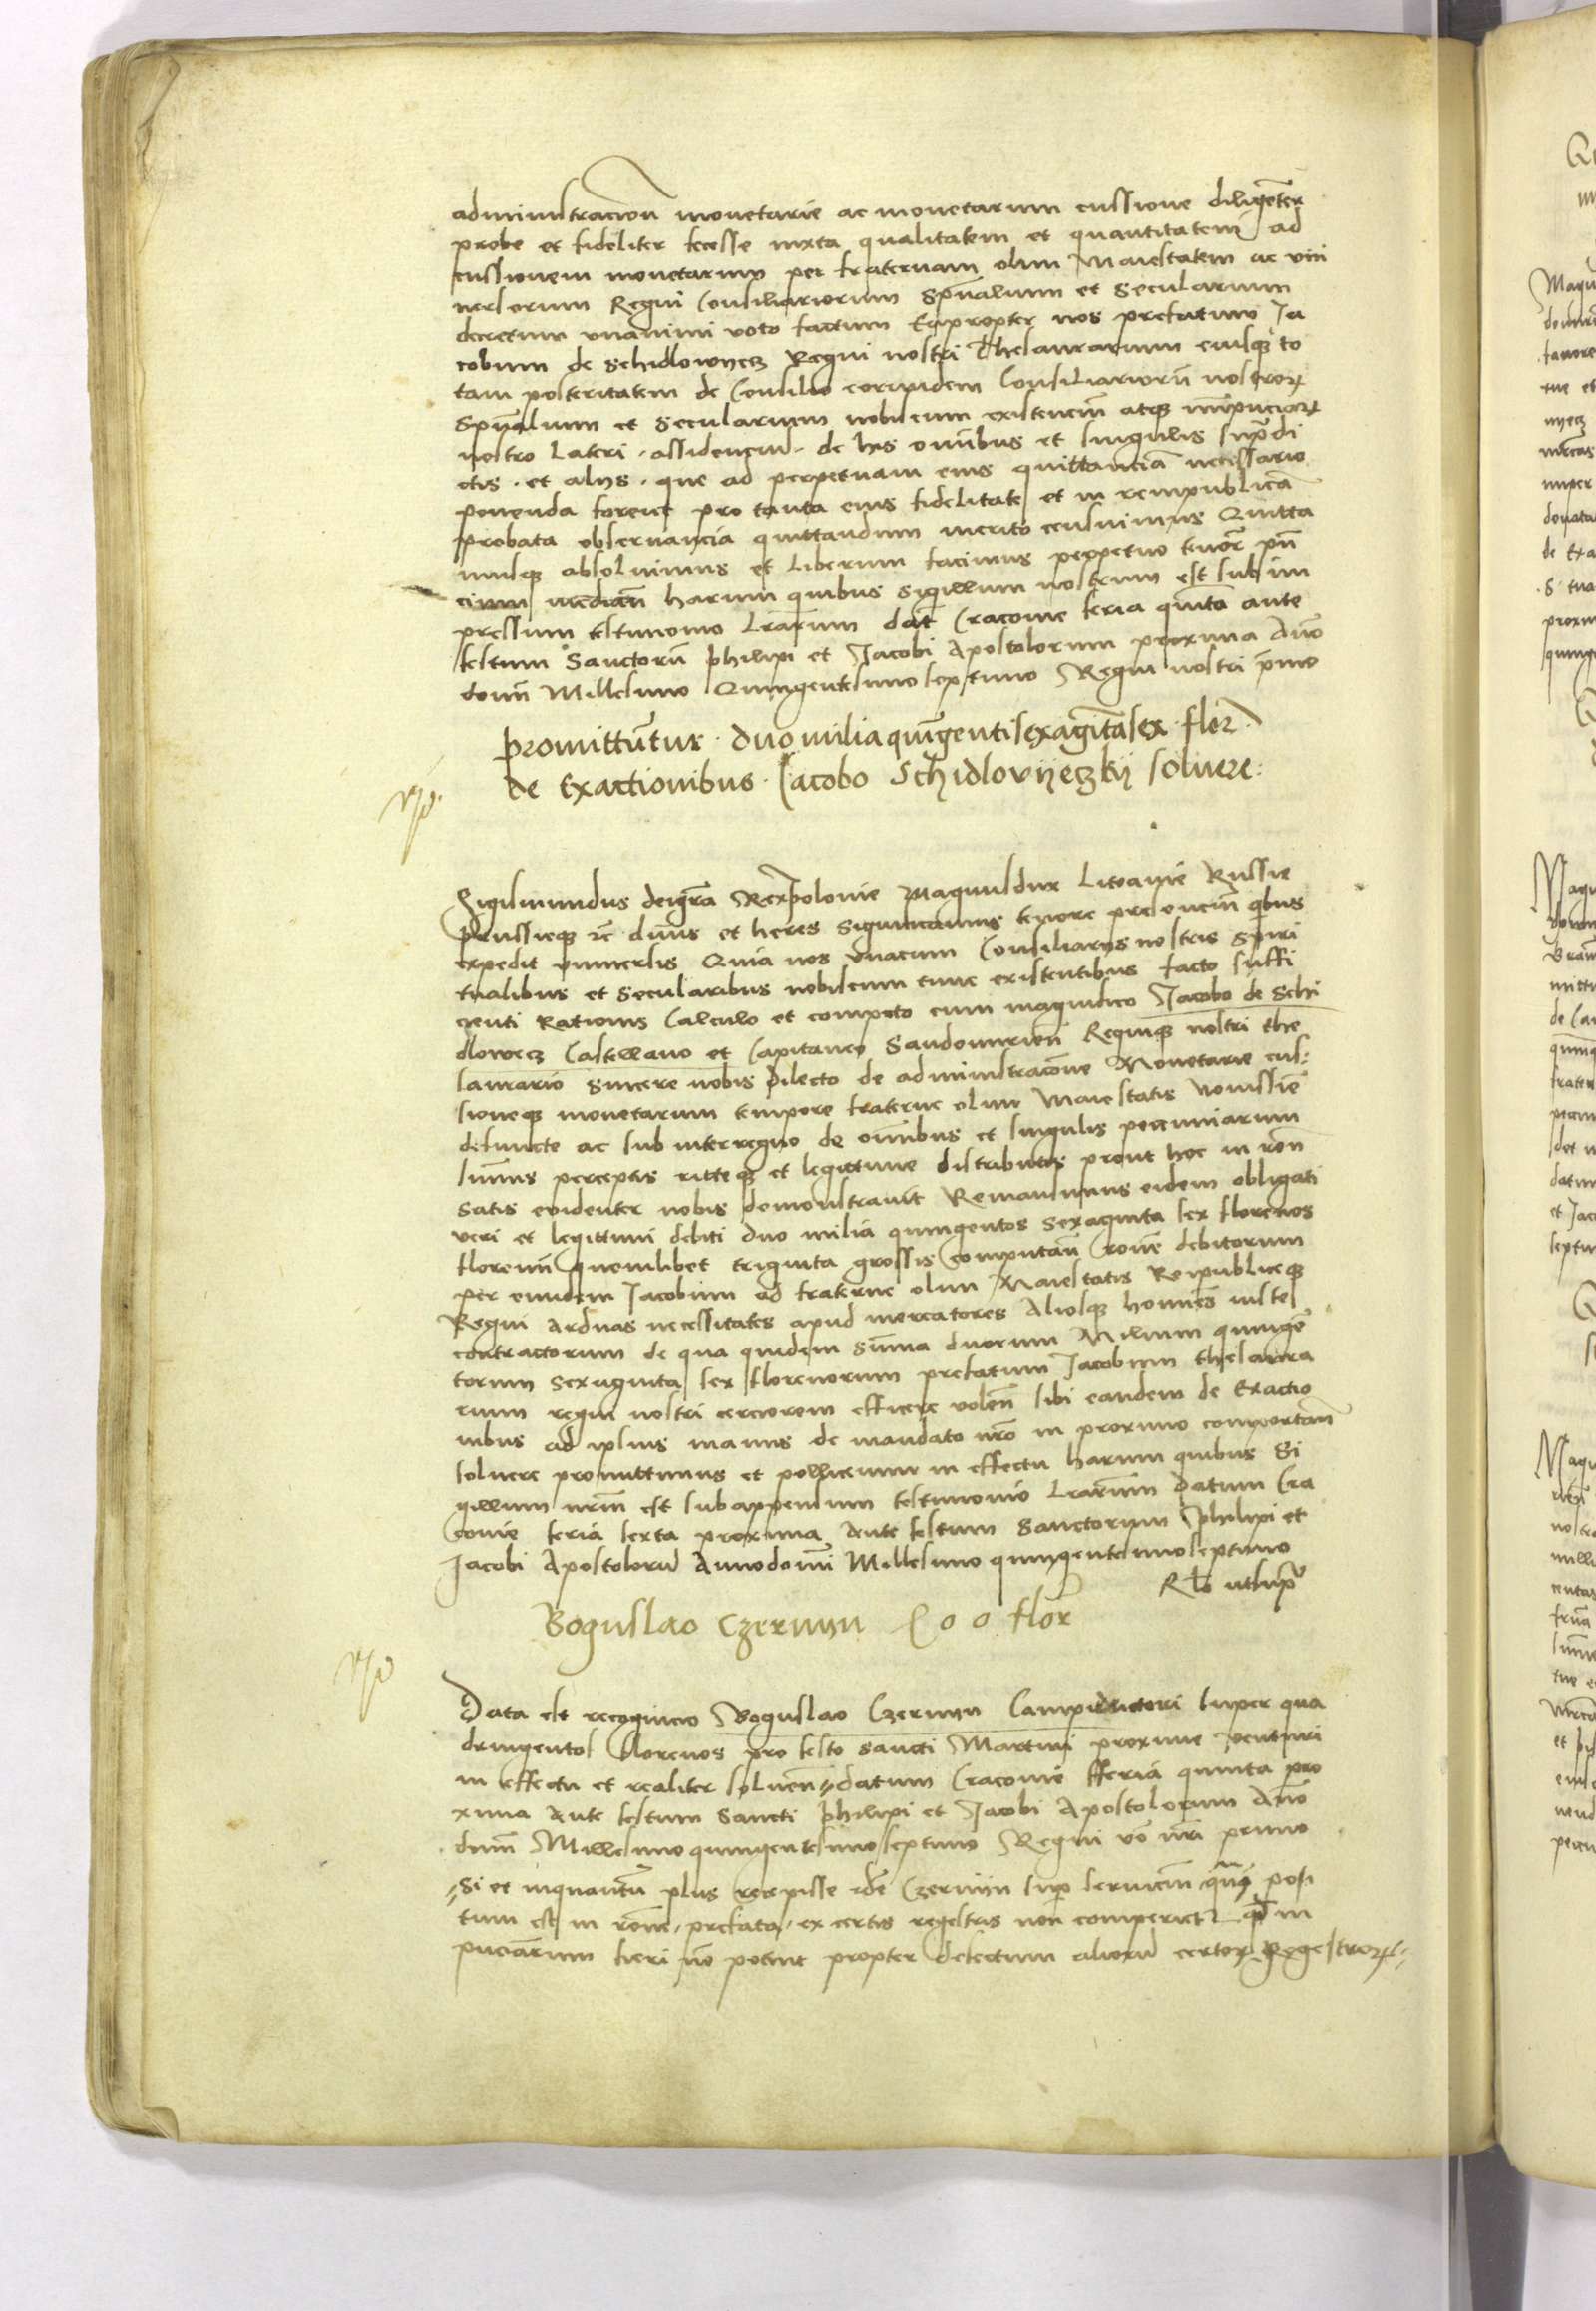 administracion monetarie ac monetarum cussione diligent̄er
probe et fideliter fecisse iuxta qualitatem et quantitatem ad
cussionem monetarum per fraternam olim Maiestatem ac vni
uersorum Regni Consiliariorum Sp̄ualium et Secularium
decretum vnanimi voto factum Eapropter nos prefatum Ja
cobum de Schidlowyecz Regni nostri Thesaurarium eiusq̨ to
tam posteritatem de Consilio eorundem Consiliariorū nostrorꝝ
Sp̄ualium et Secularium nobiscum existencīm atq̨
nostro Lateri . assidencium . de his om̄ibus et singulis supradi
ctis . et alijs . que ad perpetuam eius quittanciā necessario
ponenda forent pro tanta eius fidelitate et in rempublicā
probata obseruancia quittandum merito censuimus Quitta
musq̨ absoluimus et Liberum facimus perpetuo tenor̄ pn̄
cium mediān harum quibus sigillum nostrum est sub im
pressum testimonio Lr̄arum dat̄ Cracouie feria quinta ante
festum Sanctorū philipi et Jacobi Apostolorum proxima Anō
domī Millesimo Quingentesimo septimo Regni nostri p̄mo
promittūntur . duo milia quīngentisexagītasex . flor̄
de Exactionibus . Jacobo Schidlovijeczkij soluere :
Sigismundus deigrā Rex polonie Magnusdux Litvanie Russie
prussieq̨ rc̄ dn̄us et heres Significamus tenore presencīm qbus
expedit vniuersis Quia nos vnacum Consiliarijs nostris Spiri
tualibus et Secularibus nobiscum tunc existentibus facto suffi
cienti Rationis Calculo et computo cum magnifico Jacobo de Schi
dlowecz Castellano et Capitaneo Sandomirien̄ Regniq̨ nostri the
saurario sincere nobis dilecto de administracōne Monetarie cus:
sioneq̨ monetarum tempore fraterne olim Maiestatis Nouissie
defuncte ac sub interregno de om̄ibus et singulis pecuniarum
sum̄is perceptis ritteq̨ et legittime distributis prout hoc in rōn
satis euidenter nobis demonstrauit Remansimus eidem obligati
veri et legittimi debiti duo milia quingentos Sexaginta sex florenos
floren̄ quemlibet triginta grossis computan̄ rōne debitorum
per eundem Jacobum ad fraterne olim Maiestatis Reipubliceq̨
Regni Arduas necessitates apud mercatores Aliosq̨ homines iuste
contractorum de qua quidem sum̄a duorum Milium quinge
torum Sexaginta sex florenorum prefatum Jacobum thesaura
rium regni nostri cerciorem efficere volen̄ sibi eandem de Exactio
nibus ad ipsius manus de mandato nr̄o in proximo comportan̄
soluere promittimus et pollicemur in effectu harum quibus Si
gillum nr̄m est subappensum testimonio Lr̄arum Datum Cra
couie feria sexta proxima Ante festum Sanctorum philipi et
Jacobi Apostolorū Annodomī Millesimo quingentesimoseptimo
Rlō utsup̄
Boguslao Czernin 400 flor̄
Data est recognicio Boguslao Czernin Campiductori super qua
dringentos florenos pro festo sancti Martini proxime venturi
in effectu et realiter soluen̄ datum Cracouie fferia quinta pro
xima ante festum Sancti philipi et Jacobi Apostolorum Anō
dn̄m Millesimo quingentesimoseptimo Regni vō nr̄i primo
Si et inquantū plus recepisse idē Czernin sup seruicin̄ posi
tum est in rōne prefata ex certis regestris non comperiet
fieri nō potuit propter defectum aliorū certorꝝ Regestrorꝝ